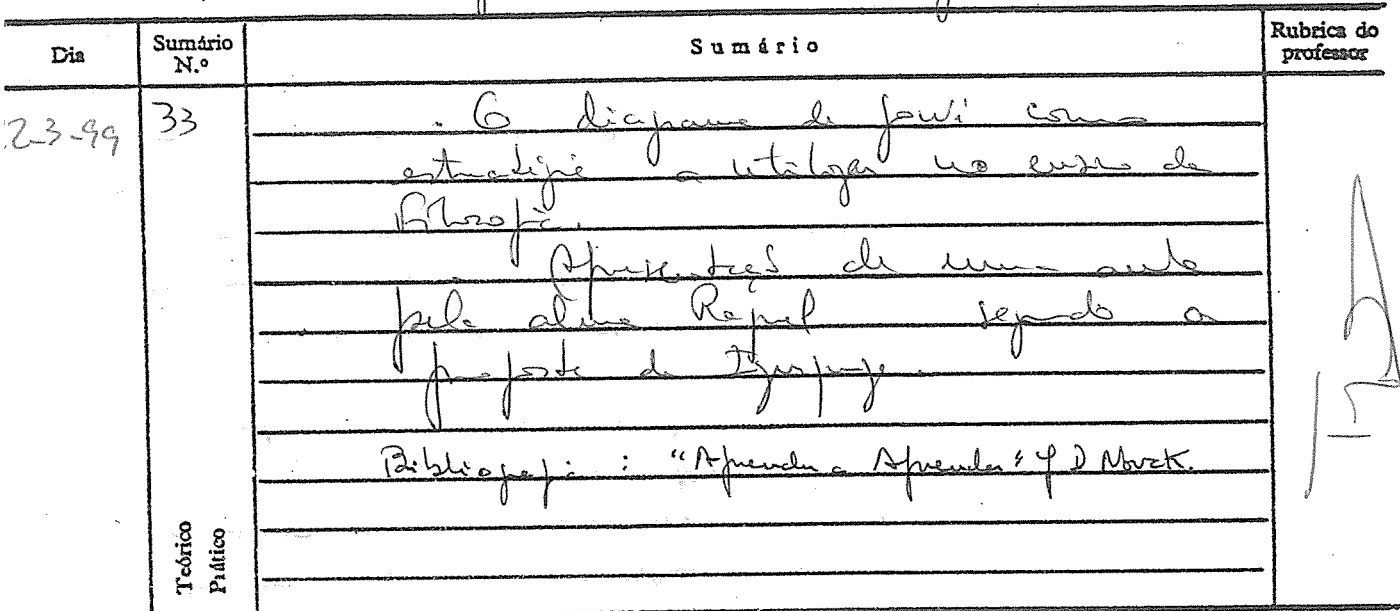 Dia
Sumário N.º
Sumário
Rubrica do professor
2-3-99
33
. O diagrama de como
estratégia a utilizar no ensino da
Filosofia.
. Apresentação de uma aula
pela aluna Raquel segundo a
proposta de
Bibliografia : "Aprender a Aprender" J D Novak.
Teórico
Prático